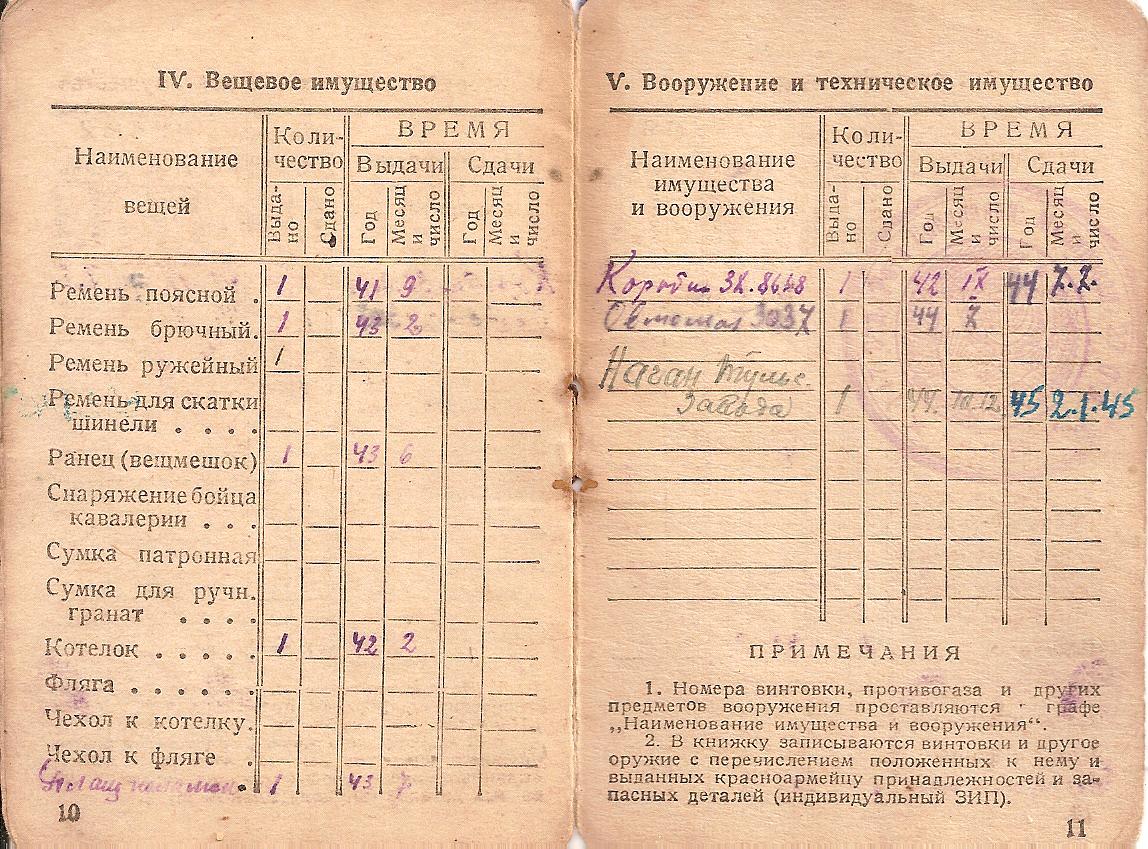 IV. Вещевое имущество
Наименование
вещей
Коли-
чество
ВРЕМЯ
Выдачи
Сдачи
Выда-
но
Сдано
Год
Месяц
и
число
Год
Месяц
и
число
Ремень поясной . 1 41 9
Ремень брючный. 1 43 2
Ремень ружейный 1
Ремень для скатки
шинели . . . .
Ранец (вещмешок) 1 43 6
Снаряжение бойца
кавалерии . . .
Сумка патронная
Сумка для ручн.
гранат . . . .
Котелок . . . . . 1 42 2
Фляга . . . . . .
Чехол к котелку.
Чехол к фляге .
1 43 7
10
V. Вооружение и техническое имущество
Наименование
имущества
и вооружения
Коли-
чество
ВРЕМЯ
Выдачи
Сдачи
Выда-
но
Сдано
Год
Месяц
и
число
Год
Месяц
и
число
1 42 IX 44 7.2.
1 44
Наган Тульс.
завода 1 44. 45 2.1.45
ПРИМЕЧАНИЯ
1. Номера винтовки, противогаза и других
предметов вооружения проставляются графе
„Наименование имущества и вооружения“.
2. В книжку записываются винтовки и другое
оружие с перечислением положенных к нему и
выданных красноармейцу принадлежностей и за-
пасных деталей (индивидуальный ЗИП).
11